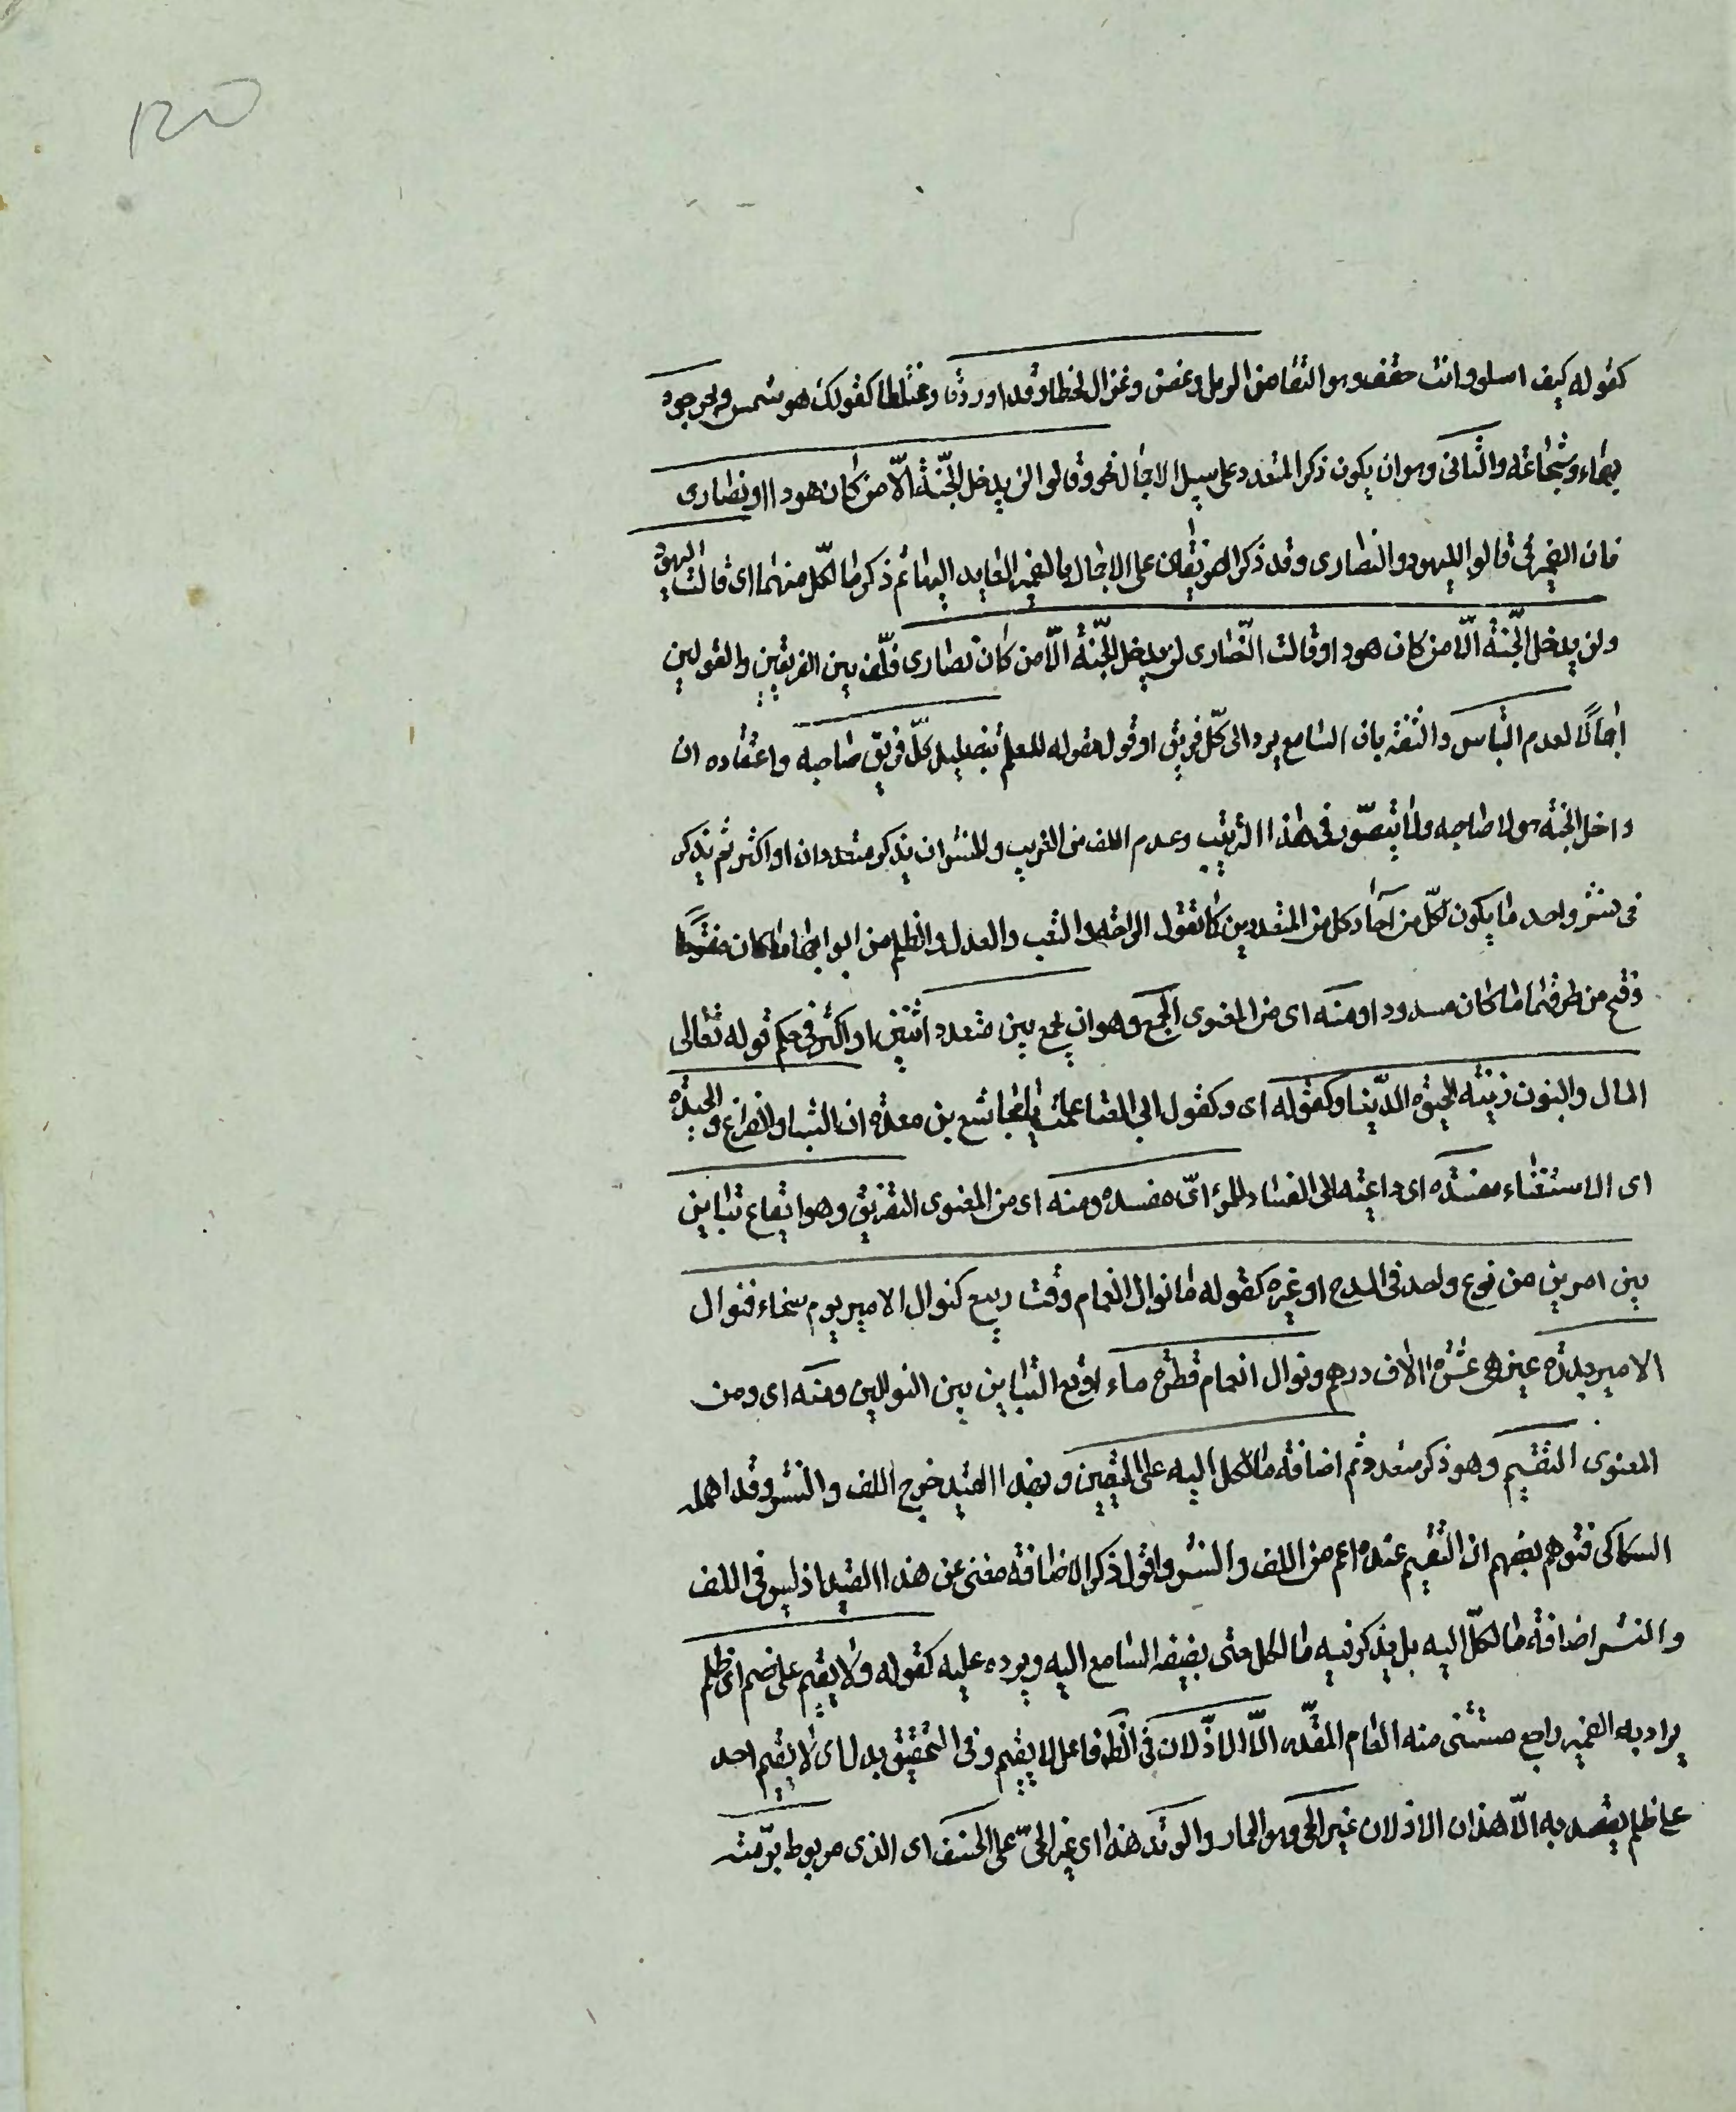 ١٢٥
كقوله كيف اسلو وانت حقف وهو النقا من الرمل وغصن وغزال لحظا وقدا وردفا ومختلطا كقولك هو شمس وبحر جود
بهاء وشجاعة والثانى وهو ان يكون ذكر المتعدد على سبيل الاجمال نحو وقالوا لن يدخل الجنّة الّا من كان هودا او نصارى
فان الضمير فى قالوا لليهود والنصارى وقد ذكر الفريقان على الاجمال بالضمير العايد اليهما ثم ذكر ما لكلّ منهما اى قالت اليهود
ولن يدخل الجّنة الّا من كان هودا وقالت النّصارى لن يدخل الجّنة الّا من كان نصارى فلّف بين الفريقين والقولين
اجمالًا لعدم التباس والثقة بان السامع يرد الى كلّ فريق او قول مقوله للعلم بتضليل كلّ فريق صاحبه واعتقاده ان
داخل الجنة هو لا صاحبه ولا يتصّور فى هذا الترتيب وعدم اللف من الغريب والنشر ان يذكر متعددان او اكثر ثم يذكر
فى نشر واحد ما يكون لكلّ من آحاد كل من المتعددين كما تقول الراحة والتعب والعدل والظلم من ابوابها ما كان مفتوحا
وفتح من طرقها ما كان مسدودا ومنه اى من المعنوى الجمع وهو ان يجمع بين متعدد اثنين او اكثر فى حكم قوله تعالى
المال والبنون زينة الحيوة الدّنيا وكقوله اى وكقول ابى العتاهية علمت يا مجاشع بن مسعده ان الشباب والفراغ والجدة
اى الاستغناء مفسدة اى داعية الى الفساد للمرء اىّ مفسده ومنه اى من المعنوى التفريق وهو ايقاع تباين
بين امرين من نوع واحد فى المدح او غيره كقوله ما نوال الغمام وقت ربيع كنوال الامير يوم سخاء فنوال
الامير بدرة عين هى عشرة الاف درهم ونوال الغمام قطرة ماء اوقع التباين بين النوالين ومنه اى ومن
المعنوى التقسيم وهو ذكر متعدد ثم اضافة ما لكل اليه على التعيين وبهذا القيد خرج اللف والنشر وقد اهمله
السكاكى فتوهم بعضهم ان التقسيم عنده اعم من اللف والنشر واقول ذكر الاضافة مغنى عن هذا القيد اذ ليس فى اللف
والنشر اضافة ما لكلّ اليه بل يذكر فيه ما لكل حتى يضيفه السامع اليه ويرده عليه كقوله ولا يقيم على ضيم اى ظلم
يراد به الضمير راجع مستثنى منه العام المقدّر الّا الاذّلان فى الظاهر فاعل لا يقيم وفى التحقيق بدل اى لا يقيم احد
على ظلم يقصد به الّا هذان الاذلان عير الحى وهو الحمار والوتد هذا اى عير الحىّ على الخسف اى الذى مربوط برّمته